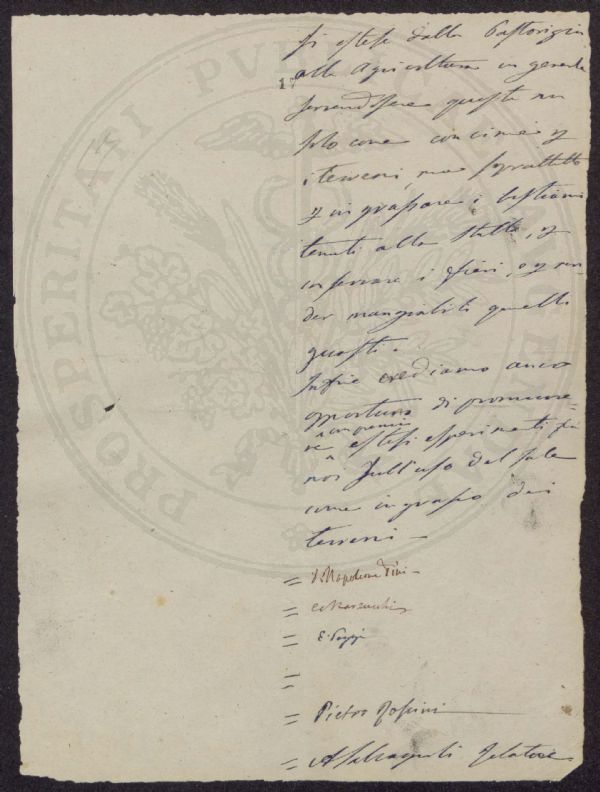 si estese dalla Pastorizia
alla Agricoltura in generale
servendosene questa non
solo come concime p
i terreni, ma soprattutto
p ingrassare i bestiami
tenuti alla stalla, p
conservare i fieni, e p ren-
der mangiabili quelli
guasti.
Infine crediamo anco
opportuno di promuove-
con premi
re estesi esperimenti fra
noi sull'uso del sale
come ingrasso dei
terreni —
= Napoleone Pini
=
= E. Poggi
=
= Pietro
= A Salvagnoli Relatore
PROSPERITATI PUBLICAE